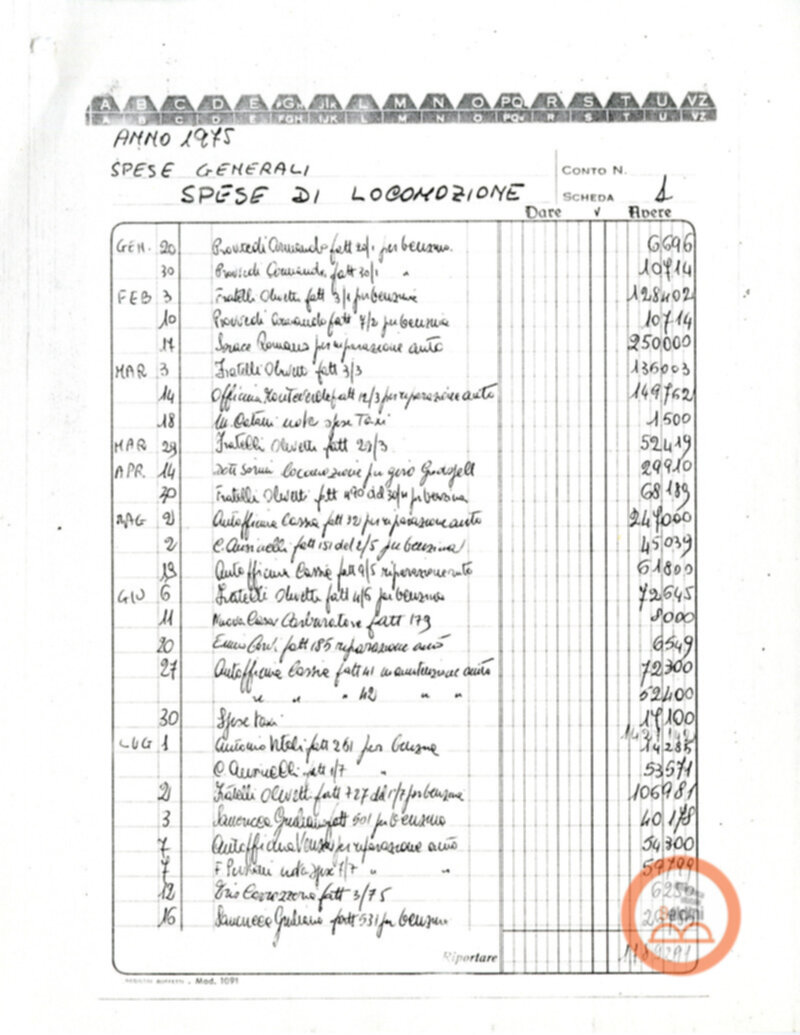 A B C D E FGH IJK L M N O PQ R S T U VZ
A B C D E FGH IJK L M N O PQ R S T U VZ
ANNO 1975
SPESE GENERALI
CONTO N.
SPESE DI LOCOMOZIONE
SCHEDA 1
Dare √ Avere
GEN. 20 Provvedi Armando fatt 20/1 per benzina 6696
30 Provvedi Armando fatt 30/1 " 10714
FEB 3 Fratelli Olivetti fatt 3/1 per benzina 128402
10 Provvedi Armando fatt 7/2 per benzina 10714
17 Sorace Romano per riparazione auto 250000
MAR 3 Fratelli Olivetti fatt 3/3 136003
14 Officina Monteverde fatt 12/3 per riparazione auto 149762
18 M. Catani nota spese Taxi 1500
MAR 29 Fratelli Olivetti fatt 29/3 52419
APR. 14 locomozione per giro 29910
30 Fratelli Olivetti fatt 490 del 30/4 per benzina 68189
MAG 2 Autofficina Cassia fatt 32 per riparazione auto 247000
2 C. Ausinelli fatt 151 del 2/5 per benzina 45039
13 Autofficina Cassia fatt 9/5 riparazione auto 61800
GIU 6 Fratelli Olivetti fatt 4/6 per benzina 72645
11 Nuova Carburatore fatt 179 8000
20 Ennio fatt 185 riparazione auto 6549
27 Autofficina Cassia fatt 41 manutenzione auto 72300
" " " 42 " " 52400
30 Spese taxi 17100
LUG 1 Antonio Vitali fatt 261 per benzina 14285
C. Ausinelli fatt 1/7 " 53571
2 Fratelli Olivetti fatt 727 del 1/7 per benzina 106981
3 Sanrocca Giuliano fatt 501 per benzina 40178
7 Autofficina per riparazione auto 54300
7 F. nota spese 7/7 " " 59799
12 Carrozzeria fatt 3/75
16 Sanrocca Giuliano fatt 531 per benzina
Riportare
Mod. 1091